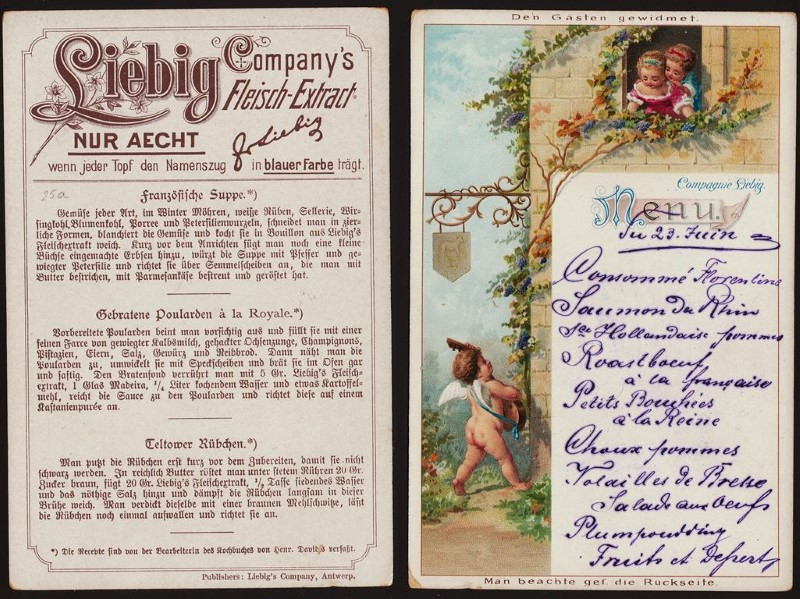 Liebig Company's
Fleisch-Extract
NUR AECHT
JvLiebig
wenn jeder Topf den Namenszug in blauer Farbe trägt.
25a
Französische Suppe.*)
Gemüse jeder Art, im Winter Möhren, weiße Rüben, Sellerie, Wir-
singkohl, Blumenkohl, Porree und Petersilienwurzeln, schneidet man in zier-
liche Formen, blanchiert die Gemüse und kocht sie in Bouillon aus Liebig's
Fleischextrakt weich. Kurz vor dem Anrichten fügt man noch eine kleine
Büchse eingemachte Erbsen hinzu, würzt die Suppe mit Pfeffer und ge-
wiegter Petersilie und richtet sie über Semmelscheiben an, die man mit
Butter bestrichen, mit Parmesankäse bestreut und geröstet hat.
Gebratene Poularden à la Royale.*)
Vorbereitete Poularden beint man vorsichtig aus und füllt sie mit einer
feinen Farce von gewiegter Kalbsmilch, gehackter Ochsenzunge, Champignons,
Pistazien, Eiern, Salz, Gewürz und Reibbrod. Dann näht man die
Poularden zu, umwickelt sie mit Speckscheiben und brät sie im Ofen gar
und saftig. Den Bratenfond verrührt man mit 5 Gr. Liebig's Fleisch-
extrakt, 1 Glas Madeira, 1/4 Liter kochendem Wasser und etwas Kartoffel-
mehl, reicht die Sauce zu den Poularden und richtet diese auf einem
Kastanienpurée an.
Teltower Rübchen.*)
Man putzt die Rübchen erst kurz vor dem Zubereiten, damit sie nicht
schwarz werden. In reichlich Butter röstet man unter stetem Rühren 20 Gr.
Zucker braun, fügt 20 Gr. Liebig's Fleischextrakt, 3/4 Tasse siedendes Wasser
und das nöthige Salz hinzu und dämpft die Rübchen langsam in dieser
Brühe weich. Man verdickt dieselbe mit einer braunen Mehlschwitze, läßt
die Rübchen noch einmal aufwallen und richtet sie an.
*) Die Recepte sind von der Bearbeiterin des Kochbuches von Henr. Davidis verfaßt.
Publishers: Liebig's Company, Antwerp.
Den Gästen gewidmet.
Compagnie Liebig.
Menu.
Du 23. Juin
Consommé Florentine
Saumon du Rhin
sce Hollandaise pommes
Roastboeuf
à la française
Petits Bouchées
à la Reine
Choux pommes
Volailles de Bresse
Salade aux oeufs
Plumpoudding
Fruits et Dessert
Man beachte gef. die Rückseite.